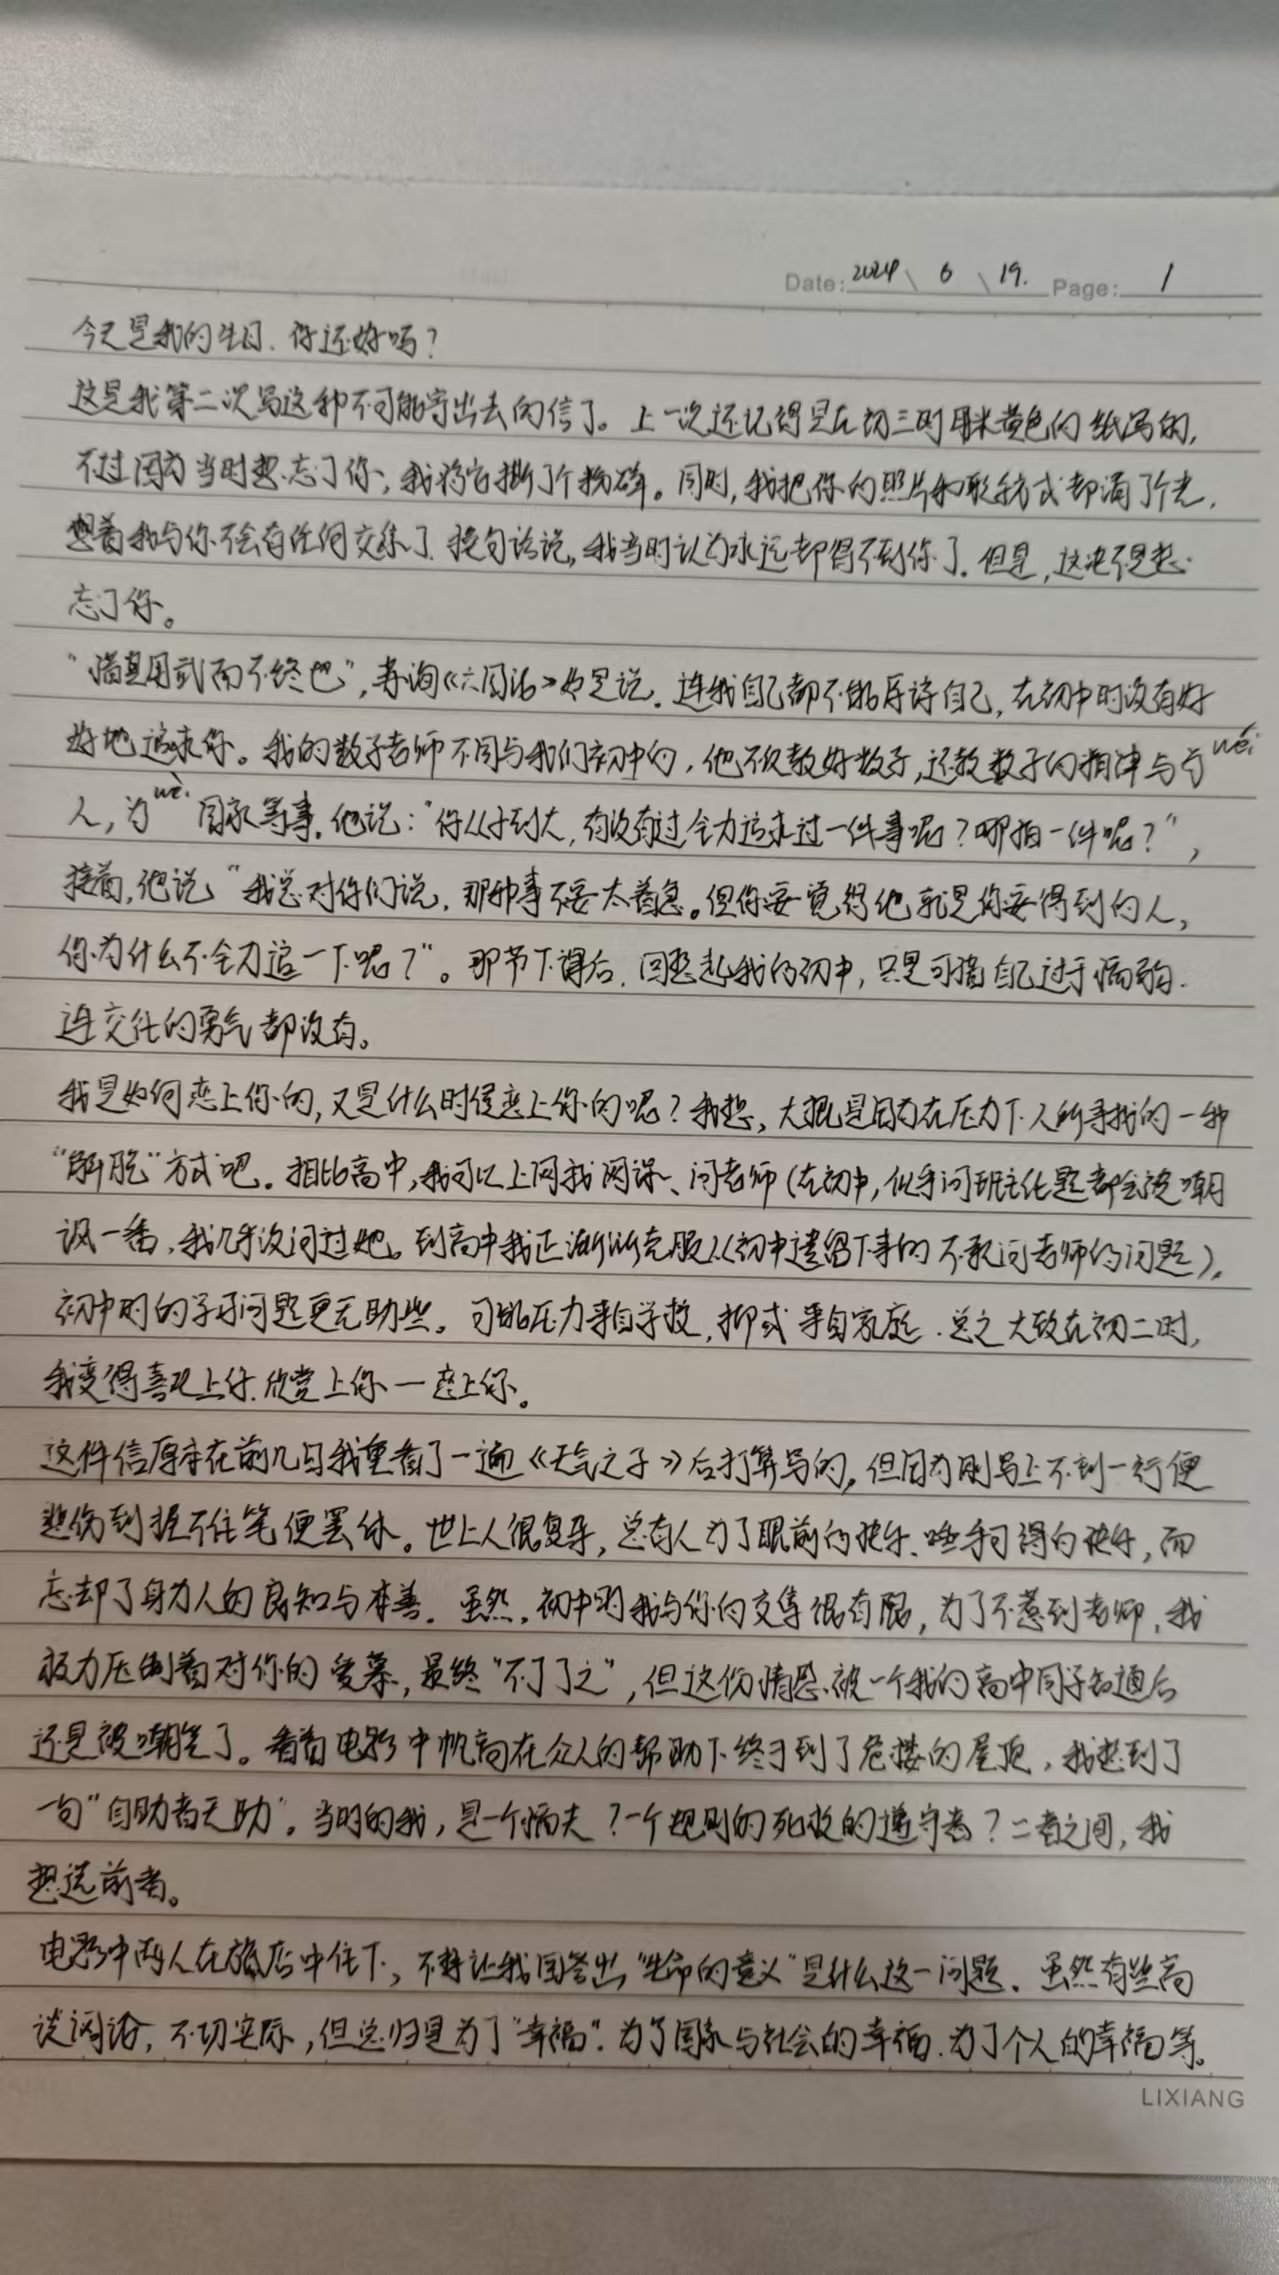 Date: 2024 \ 6 \ 19. Page: 1
今天是我的生日. 你还好吗？
这是我第二次写这种不可能寄出去的信了。上一次还记得是在初三时用米黄色的纸写的,
不过因为当时想忘了你, 我将它撕了个粉碎。同时, 我把你的照片和联系方式都清了个光,
想着我与你不会有任何交集了. 换句话说, 我当时认为永远都得不到你了. 但是, 这也不是想
忘了你。
“惜其用武而不终也”, 苏洵《六国论》如是说. 连我自己都不能原谅自己, 在初中时没有好
好地追求你。我的数学老师不同与我们初中的, 他不仅教好数学, 还教数学的规律与为wéi
人, 为wèi国家等事. 他说：“你从小到大, 有没有过全力追求过一件事呢？哪怕一件呢？”,
接着, 他说“我总对你们说, 那种事不要太着急。但你要觉得他就是你要得到的人,
你为什么不全力追一下呢？”。那节下课后. 回想起我的初中, 只是可惜自己过于懦弱.
连交往的勇气都没有。
我是如何恋上你的, 又是什么时侯恋上你的呢？我想, 大概是因为在压力下人所寻找的一种
“解脱”方式吧. 相比高中, 我可以上网找网课、问老师 (在初中, 似乎问班主任题都会被嘲
讽一番, 我几乎没问过她。到高中我正渐渐克服从初中遗留下来的不敢问老师的问题),
初中时的学习问题更无助些. 可能压力来自学校, 抑或来自家庭. 总之大致在初二时,
我变得喜欢上你. 欣赏上你一恋上你。
这件信原本在前几日我重看了一遍《天气之子》后打算写的, 但因为刚写上不到一行便
悲伤到握不住笔便罢休。世上人很复杂, 总有人为了眼前的快乐、唾手可得的快乐, 而
忘却了身为人的良知与本善. 虽然, 初中时我与你的交集很有限, 为了不惹到老师, 我
极力压制着对你的爱慕, 最终“不了了之”, 但这份情愿被一个我的高中同学知道后
还是被嘲笑了。看着电影中帆高在众人的帮助下终于到了危楼的屋顶, 我想到了
一句“自助者天助”. 当时的我, 是一个懦夫？一个规则的死板的遵守者？二者之间, 我
想选前者。
电影中两人在旅店中住下, 不禁让我回答出“生命的意义”是什么这一问题. 虽然有些高
谈阔论, 不切实际, 但总归是为了“幸福”. 为了国家与社会的幸福. 为了个人的幸福等。
LIXIANG